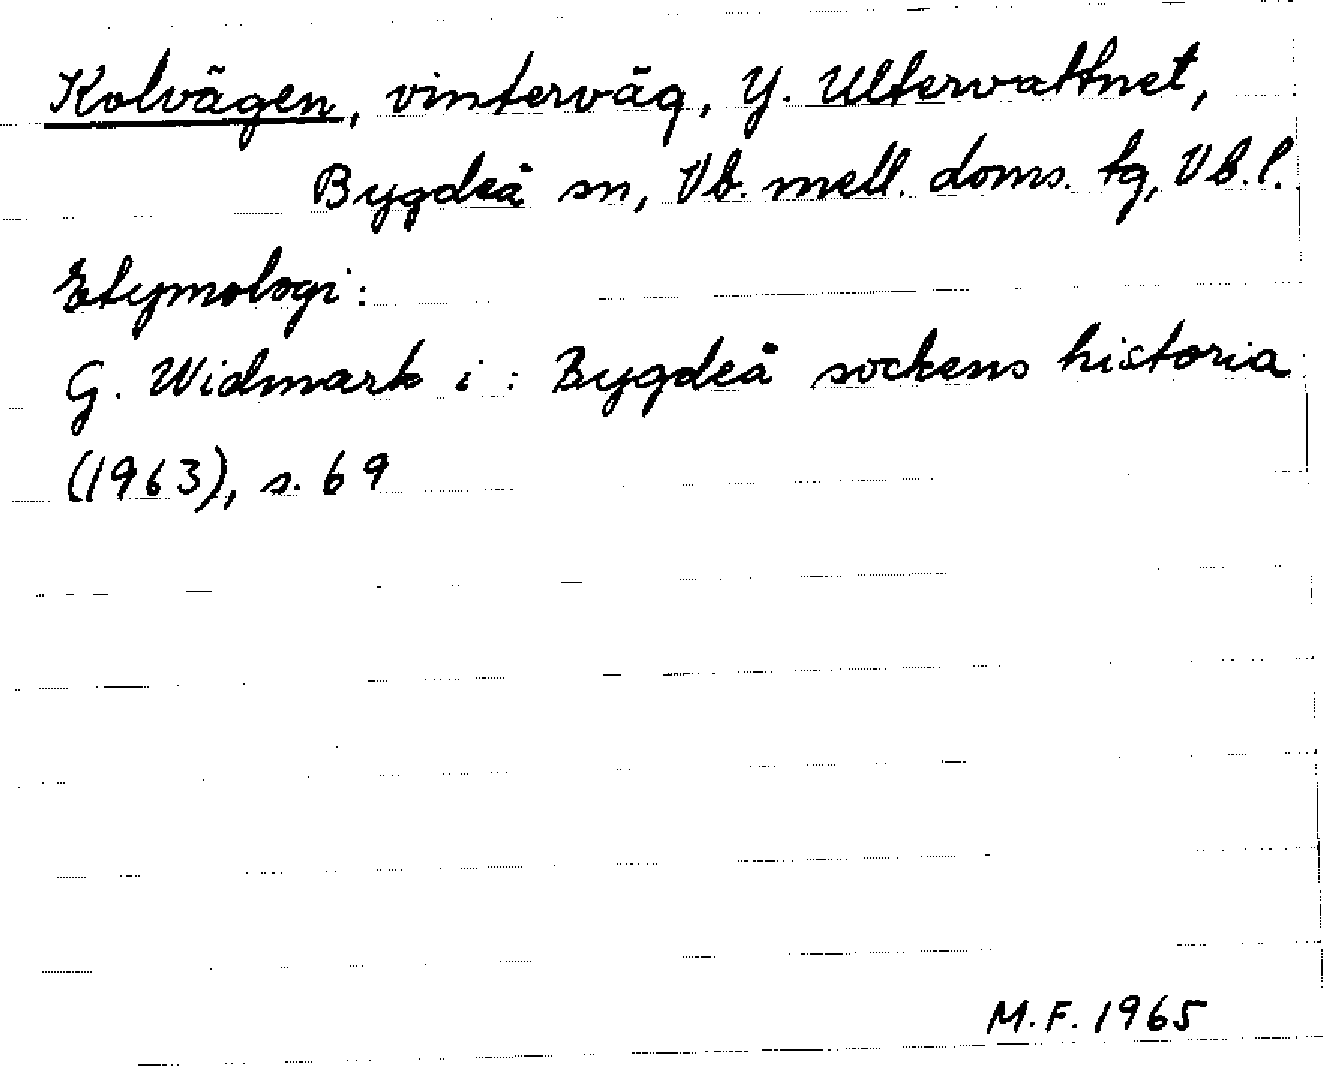 Kolvägen, vinterväg, Y. Ultervattnet,
Bygdeå sn, Vb. mell. doms. tg, Vb.l.
Etymologi:
G. Widmark i: Bygdeå sockens historia
(1963), s. 69
M.F. 1965